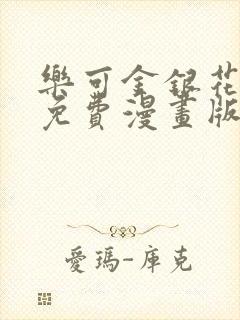 樂可金銀花
免費漫畫版
愛瑪-庫克